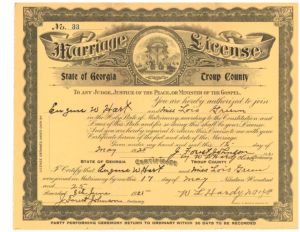 No. 33
Marriage License
State of Georgia Troup County
TO ANY JUDGE, JUSTICE OF THE PEACE, OR MINISTER OF THE GOSPEL.
You are hereby authorized to join
Eugene W Hart and Miss Lois
in the Holy State of Matrimony according to the Constitution and
Laws of this State and for so doing this shall be your License
And you are hereby required to return this License to me with your
Certificate hereon of the fact and date of the Marriage.
Given under my hand and seal this 15 day of
May
STATE OF GEORGIA Certificate TROUP COUNTY
I Certify that Eugene W Hart and Miss Lois
were joined in Matrimony by me this 17 day of May Nineteen Hundred
and 25
Recorded June 1925
PARTY PERFORMING CEREMONY RETURN TO ORDINARY WITHIN 30 DAYS TO BE RECORDED